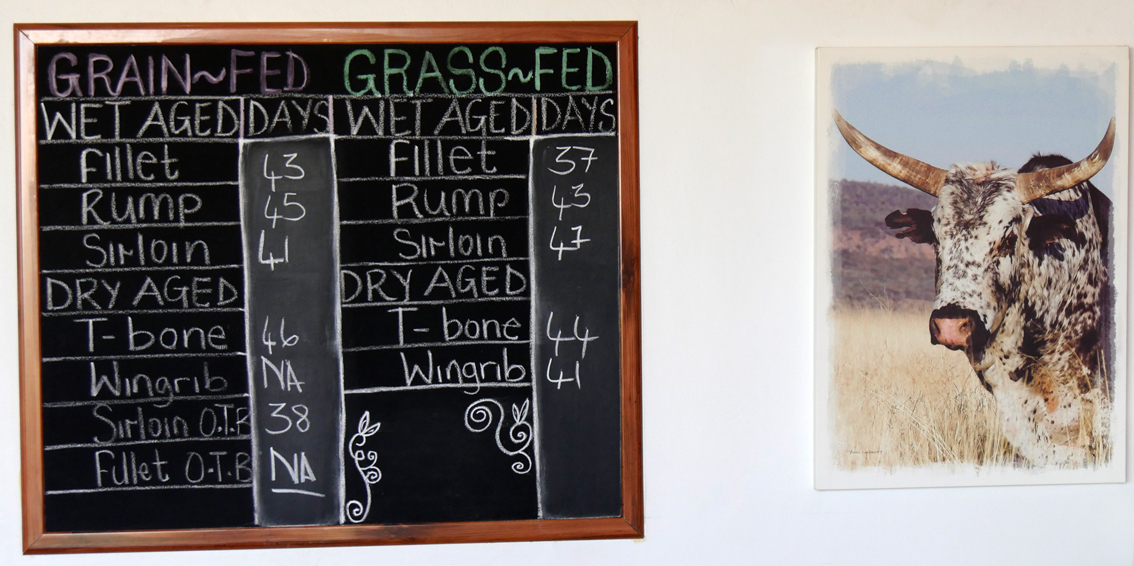 GRAIN~FED GRASS~FED
WET AGED DAYS WET AGED DAYS
Fillet 43 Fillet 37
Rump 45 Rump 43
Sirloin 41 Sirloin 47
DRY AGED DRY AGED
T-bone 46 T-bone 44
Wingrib NA Wingrib 41
Sirloin O.T.B 38
Fillet O.T.B NA